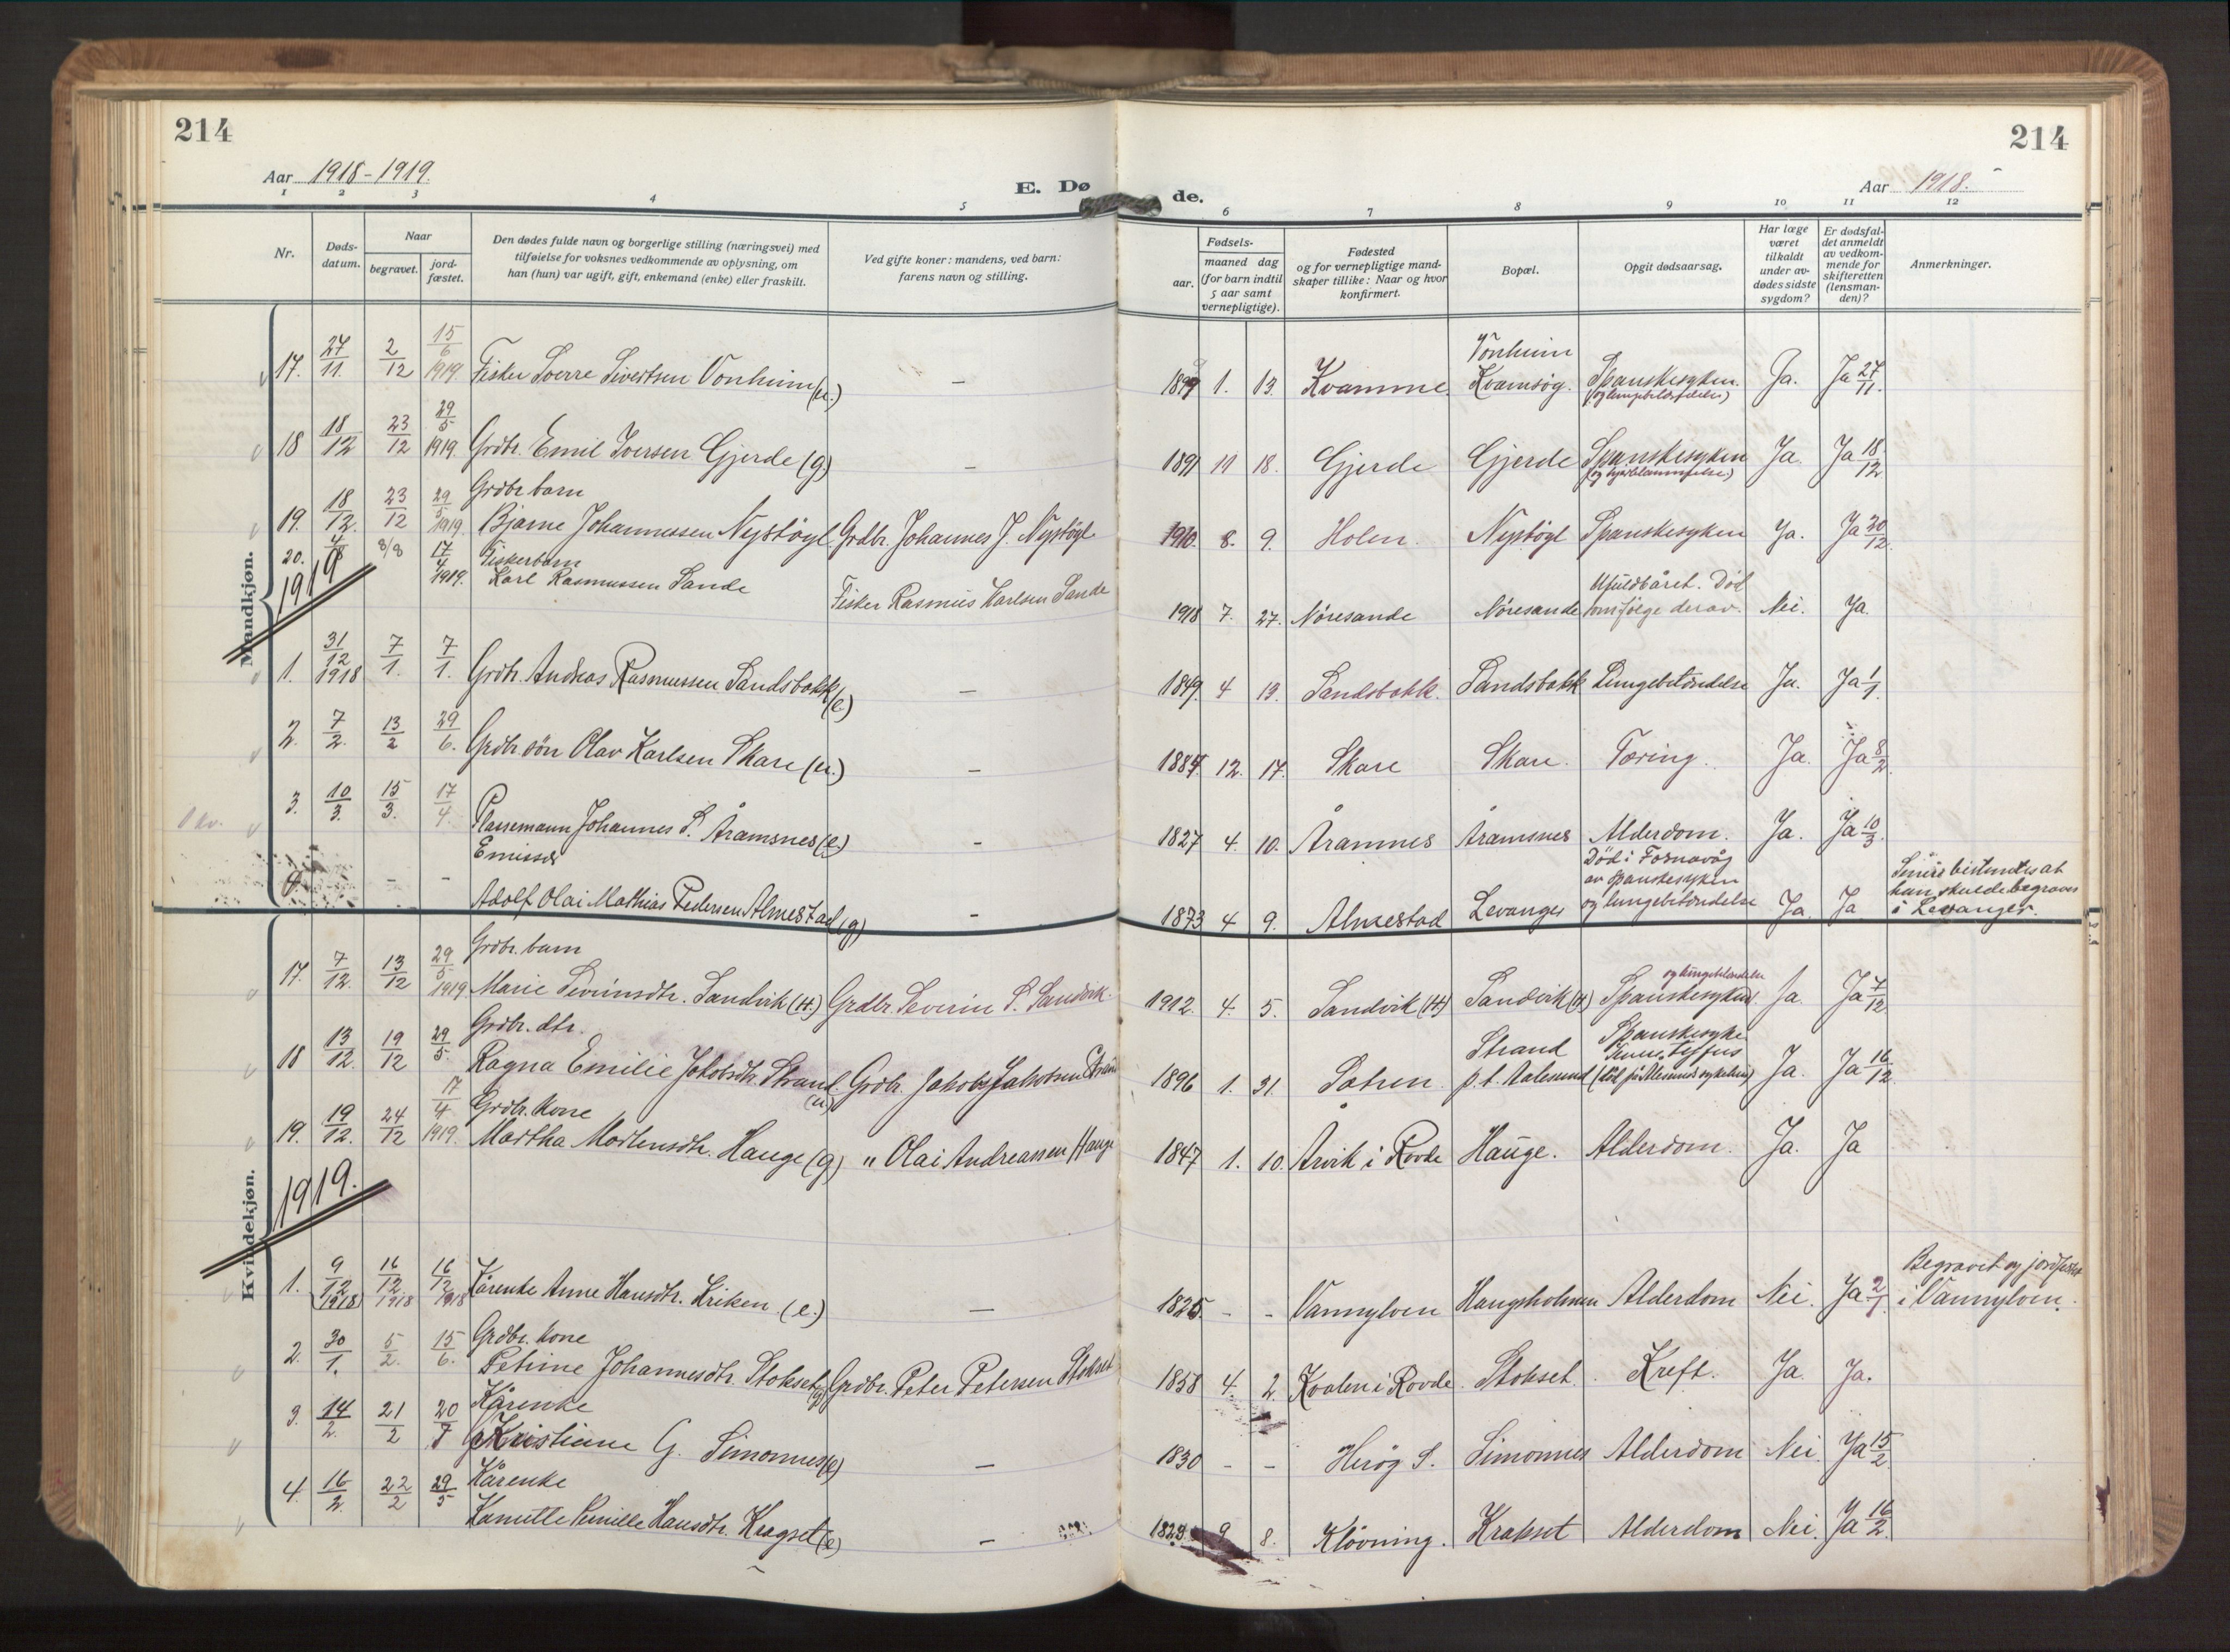 214
214
Aar 1918-1919.
E. Dø
de.
Aar 1918.
1 2 3 4 5 6 7 8 9 10 11 12
Nr.
Døds-
datum.
Naar
begravet.
jord-
fæstet.
Den dødes fulde navn og borgerlige stilling (næringsvei) med
tilføielse for voksnes vedkommende av oplysning, om
han (hun) var ugift, gift, enkemand (enke) eller fraskilt.
Ved gifte koner: mandens, ved barn:
farens navn og stilling.
Fødsels-
aar.
maaned dag
(for barn indtil
5 aar samt
vernepligtige).
Fødested
og for vernepligtige mand-
skaper tillike: Naar og hvor
konfirmert.
Bopæl.
Opgit dødsaarsag.
Har læge
været
tilkaldt
under av-
dødes sidste
sygdom?
Er dødsfal-
det anmeldt
av vedkom-
mende for
skifteretten
(lensman-
den)?
Anmerkninger.
Mandkjøn.
17. 27/11. 2/12 15/6 1919. Fisker Sverre Sivertsen Vonheim (u.) — 1899 1. 13. Kvamme Vonheim Kvamsøg. Spanskesyken. Ja. Ja 27/11.
18 18/12 23/12 29/5 1919. Grdbr. Emil Iversen Gjerde (g) — 1891 11 18. Gjerde Gjerde Spanskesyken Ja. Ja 18/12
Grdbr barn
19. 18/12. 23/12 29/5 1919. Bjarne Johannessen Nystøyl Grdbr. Johannes J. Nystøyl 1910. 8. 9. Holen. Nystøyl Spanskesyken Ja. Ja 20/12.
20. 4/8 8/8 17/4 1919. Fiskerbarn
Karl Rasmussen Sande Fisker Rasmus Karlsen Sande 1918 7. 27. Nøresande Nøresande Ufuldbåret. Död som følge derav. Nei. Ja.
1919
1. 31/12 1918 7/1. 7/1. Grdbr. Andreas Rasmussen Sandsbakk (e.) — 1849. 4 19. Sandsbakk. Sandsbakk Lungebetændelse Ja. Ja 1/1
2. 7/2. 13/2 29/6. Grdbr. sön Olav Karlsen Skare (u.) — 1884. 12. 17. Skare Skare. Tæring. Ja. Ja 8/2
3. 10/3. 15/3. 17/4. Plassemann Johannes S. Åramsnes (e.) - 1827 4. 10. Åramnes Åramsnes Alderdom. Ja. Ja 10/3.
Emissær
4. - - Adolf Olai Mathias Pedersen Almestad (g) - 1873 4 9. Almestad Levanger Död i Fosnavåg
av spanskesyken
og lungebetændelse Ja Ja
han skulde begraves
i Levanger.
Kvindekjøn.
Grdbr. barn
17. 7/12. 13/12 29/5 1919 Marie Severinsdtr. Sandvik (H.) Grdbr. Severin S. Sandvik. 1912. 4. 5. Sandvik (H) Sandvik (H) Spanskesyken og lungebetændelse Ja. Ja 7/12.
Grdbr. dtr.
18 13/12. 19/12 29/5. Ragna Emilie Jakobsdtr. Strand (u) Grdbr. Jakob Jakobsen Strand 1896 1. 31. Sætren. Strand
p. t. Aalesund Spanskesyke Ja. Ja 16/12.
Grdbr. kone
19. 19/12. 24/12 17/4 1919. Martha Mortensdtr. Hauge (g) " Olai Andreassen Hauge 1847 1. 10. Årvik i Rovde Hauge. Alderdom. Ja. Ja
1919.
1. 9/12 (1918) 16/12. 1918 16/12 1918 Kårenke Anne Hansdtr. Kriken. (e.) — 1825. - - Vannylven Haugsholmen Alderdom Nei. Ja 2/1. Begravet og jordfæstet
i Vannylven.
Grdbr. kone
2. 30/1. 5/2. 15/6. Petrine Johannesdtr. Stokset (g) Grdbr. Peter Petersen Stokset 1858 4. 2. Kvalen i Rovde. Stokset. Kreft. Ja. Ja.
Kårenke
3. 14/2. 21/2 20/7 Kristiane G. Simonnes (e) — 1830 - - Herøg S. Simonnes Alderdom Nei. Ja 15/2
Kårenke
4. 16/2. 22/2 29/5 Hansdtr. Kragset (e) — 9 8. Kløvning. Krakset Alderdom Nei. Ja 16/2.